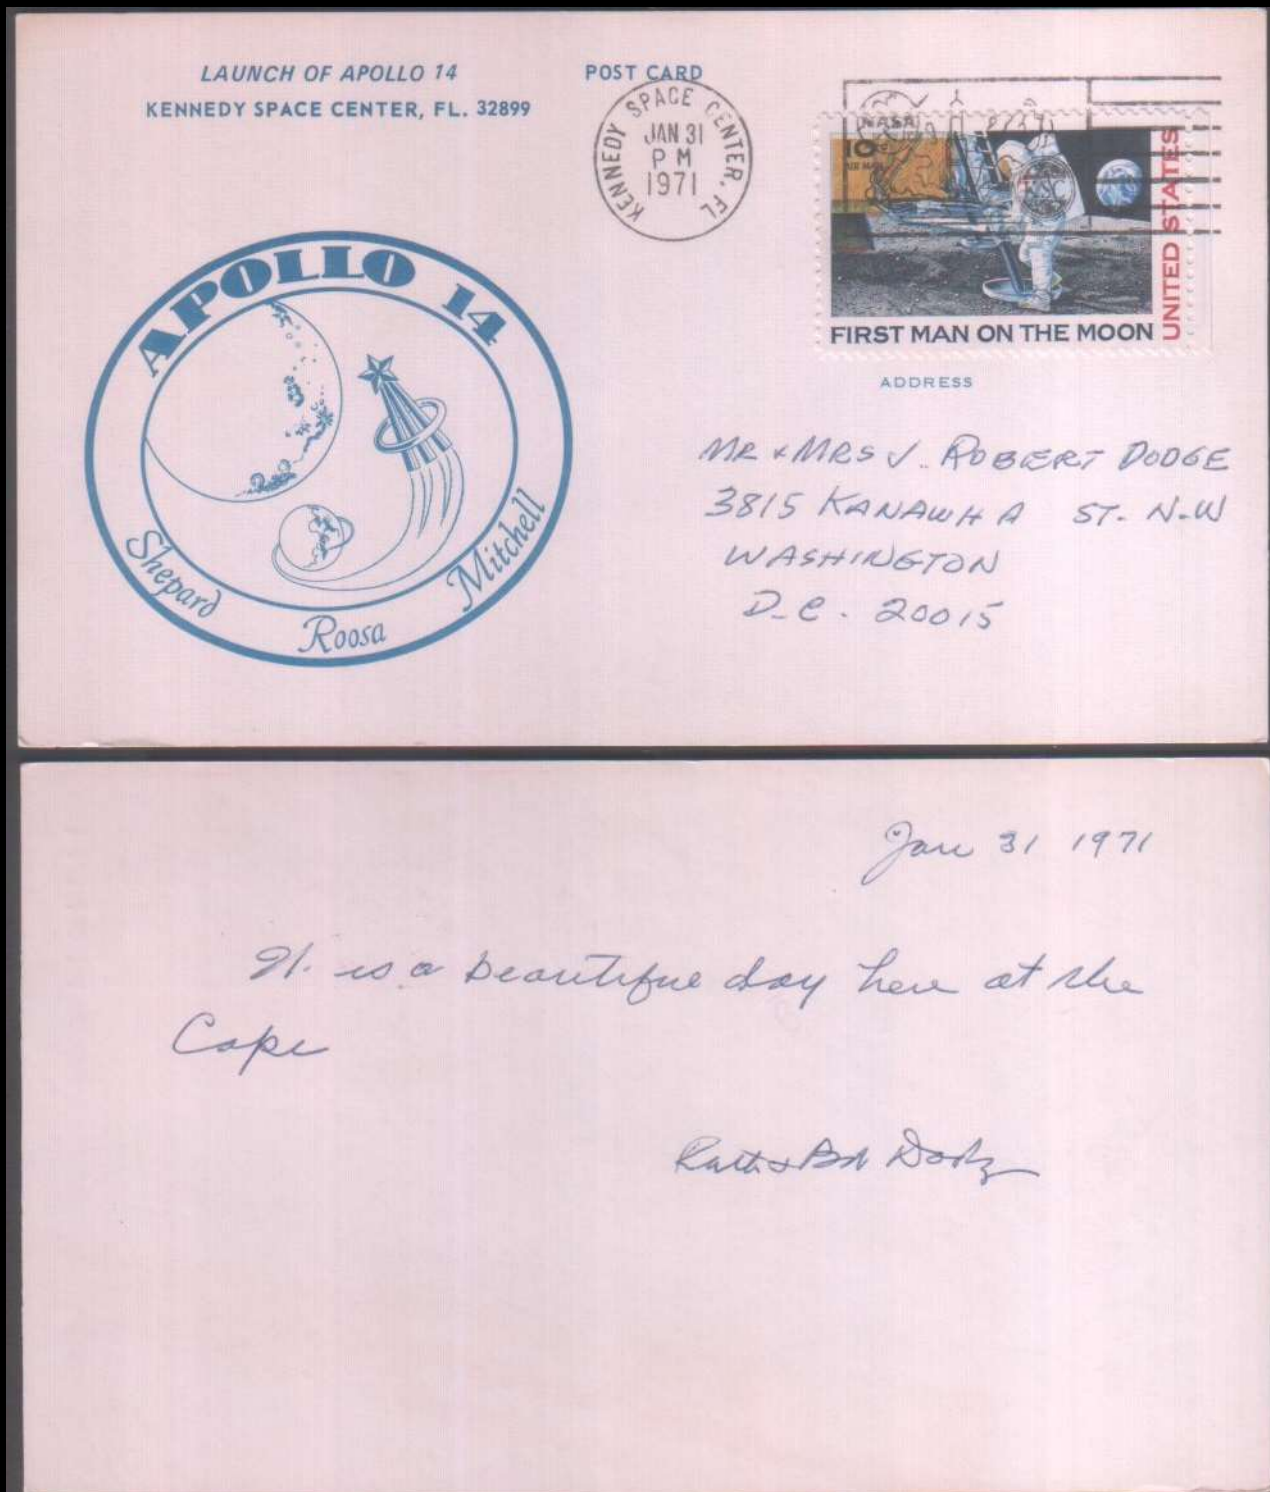 LAUNCH OF APOLLO 14
KENNEDY SPACE CENTER, FL. 32899
POST CARD
KENNEDY SPACE CENTER, FL
JAN 31
PM
1971
NASA
10¢
AIR MAIL
UNITED STATES
FIRST MAN ON THE MOON
ADDRESS
APOLLO 14
Shepard
Roosa
Mitchell
MR & MRS J. ROBERT DODGE
3815 KANAWHA ST. N.W
WASHINGTON
D.C. 20015
Jan 31 1971
It is a beautiful day here at the
Cape
Ruth & Bob Dodge